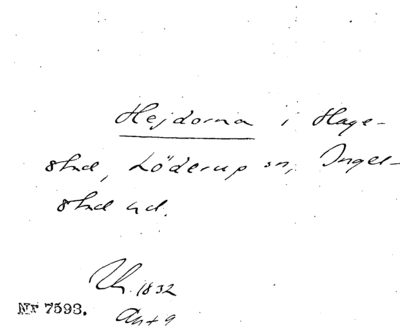 Hejdorna i Hage-
stad, Löderup sn, Ingel-
stad hd.
1832
Nr 7593.